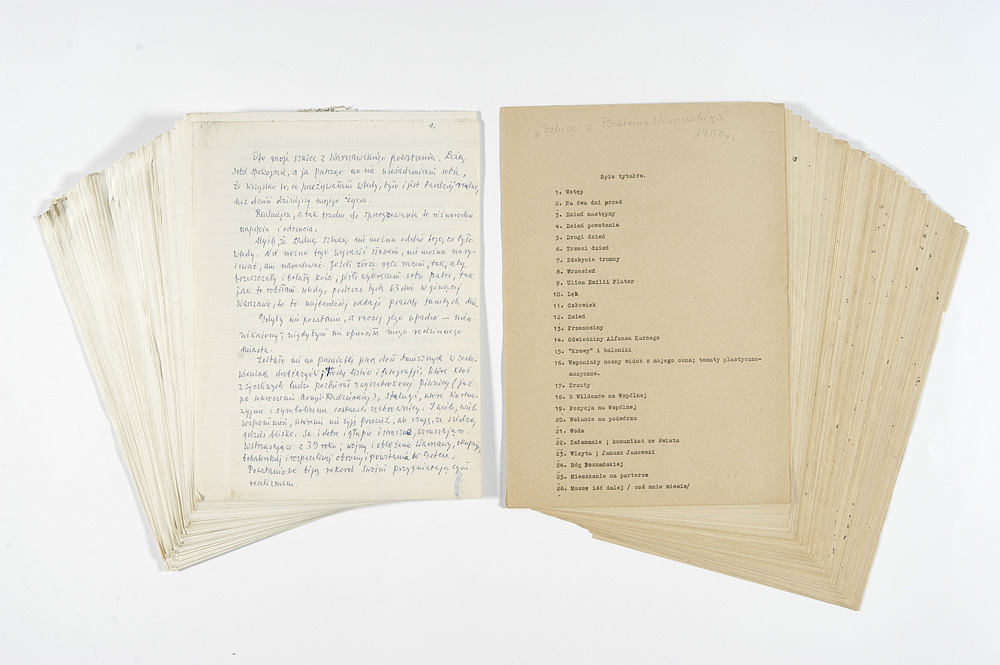 1.
Oto moje szkice z Warszawskiego powstania. Leżą
sobie spokojnie, a ja patrząc na nie uświadamiam sobie,
że wszystko to, co przeżywałam wtedy, było i jest bardziej realne,
niż dzień dzisiejszy mojego życia.
Realniejsze, a tak trudne do sprecyzowania te różnorodne
napięcia i odczucia.
Myślę, że żadną sztuką nie można oddać tego, co było
wtedy. Nie można tego wyrazić słowami, nie można nary-
sować, ani namalować. Jeżeli złożę ręce razem, tak, aby
trzeszczały i bolały kości, jeśli wykręcam sobie palce, tak
jak to robiłam wtedy, podczas tych 63 dni w ginącej
Warszawie, to to najbardziej oddaje prawdę tamtych dni.
Gdyby nie powstanie, a raczej jego upadek — nieu-
nikniony, nigdy bym nie opuściła mego rodzinnego
miasta.
Zostało mi na pamiątkę parę dość śmiesznych w zesta-
wieniach drobiazgów, listów i fotografii, które ktoś
z życzliwych ludzi pozbierał z wyszabrowanej piwnicy (już
po wkroczeniu Armii Radzieckiej), sztalugi, które
i symbolicznie zostawili szabrownicy. I wiele, wiele
wspomnień, którem nie żyję przecież, ale czuję, że siedzą
gdzieś blisko. Są i dobre i głupie i straszne, wzruszające
wstrząsające z 39 roku; wojny i oblężenia Warszawy, okupacji,
bohaterskiej i rozpaczliwej obrony i powstania w Getcie.
Powstaniowe biją rekord swoim przygniatającym
realizmem.
„Szkice z Powstania Warszawskiego”
1960 r.
Spis tytułów.
1. Wstęp
2. Na dwa dni przed
3. Dzień następny
4. Dzień powstania
5. Drugi dzień
6. Trzeci dzień
7. Zdobycie trumny
8. Wrzesień
9. Ulica Emilii Plater
10. Lęk
11. Człowiek
12. Dzień
13. Przenosiny
14. Odwiedziny Alfonsa Karnego
15. "Krowy" i baloniki
16. Wspaniały nocny widok z mojego okna; tematy plastyczno-
muzyczne.
17. Zrzuty
18. U Wildenów na Wspólnej
19. Pozycja na Wspólnej
20. Wołanie na podwórzu
21. Woda
22. Załamanie ; komunikat ze świata
23. Wizyta ; Janusz Janowski
24. Róg Poznańskiej
25. Mieszkanie na parterze
26. Muszę iść dalej / coś mnie niesie/